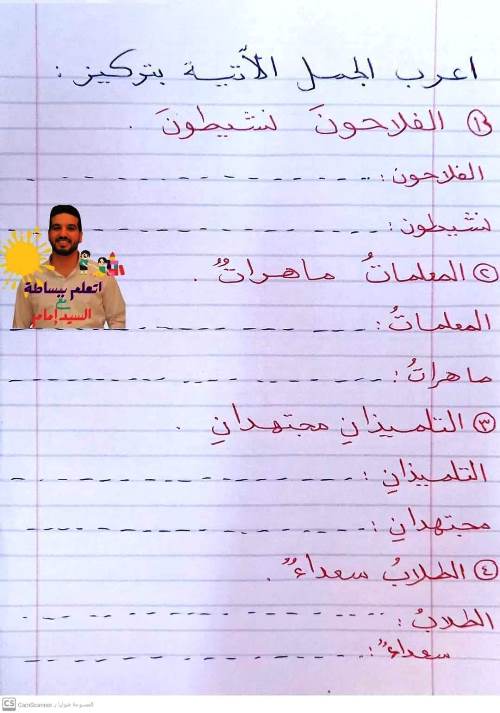 اعرب الجمل الآتية بتركيز :
١ الفلاحونَ نشيطونَ .
الفلاحون :
نشيطون :
٢ المعلماتُ ماهراتٌ .
اتعلم ببساطة
مع
السيد إمام
المعلماتُ :
ماهراتٌ :
٣ التلميذانِ مجتهدانِ .
التلميذانِ :
مجتهدانِ :
٤ الطلابُ سعداءٌ .
الطلابُ :
سعداءٌ :
CS CamScanner الممسوحة ضوئيا بـ